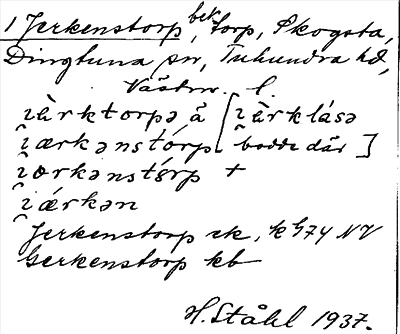 1 Jerkenstorp, bek. torp, Skogsta,
Dingtuna sn, Tuhundra hd,
Västm. l.
i̯ὰrktorpə å [i̯ὰrklásə
i̯ærkənstórp bodde där]
i̯orkənstórp +
i̯ǽrkən
Jerkenstorp ek, k G74 NV
Gerkenstorp kb
H. Ståhl 1937.